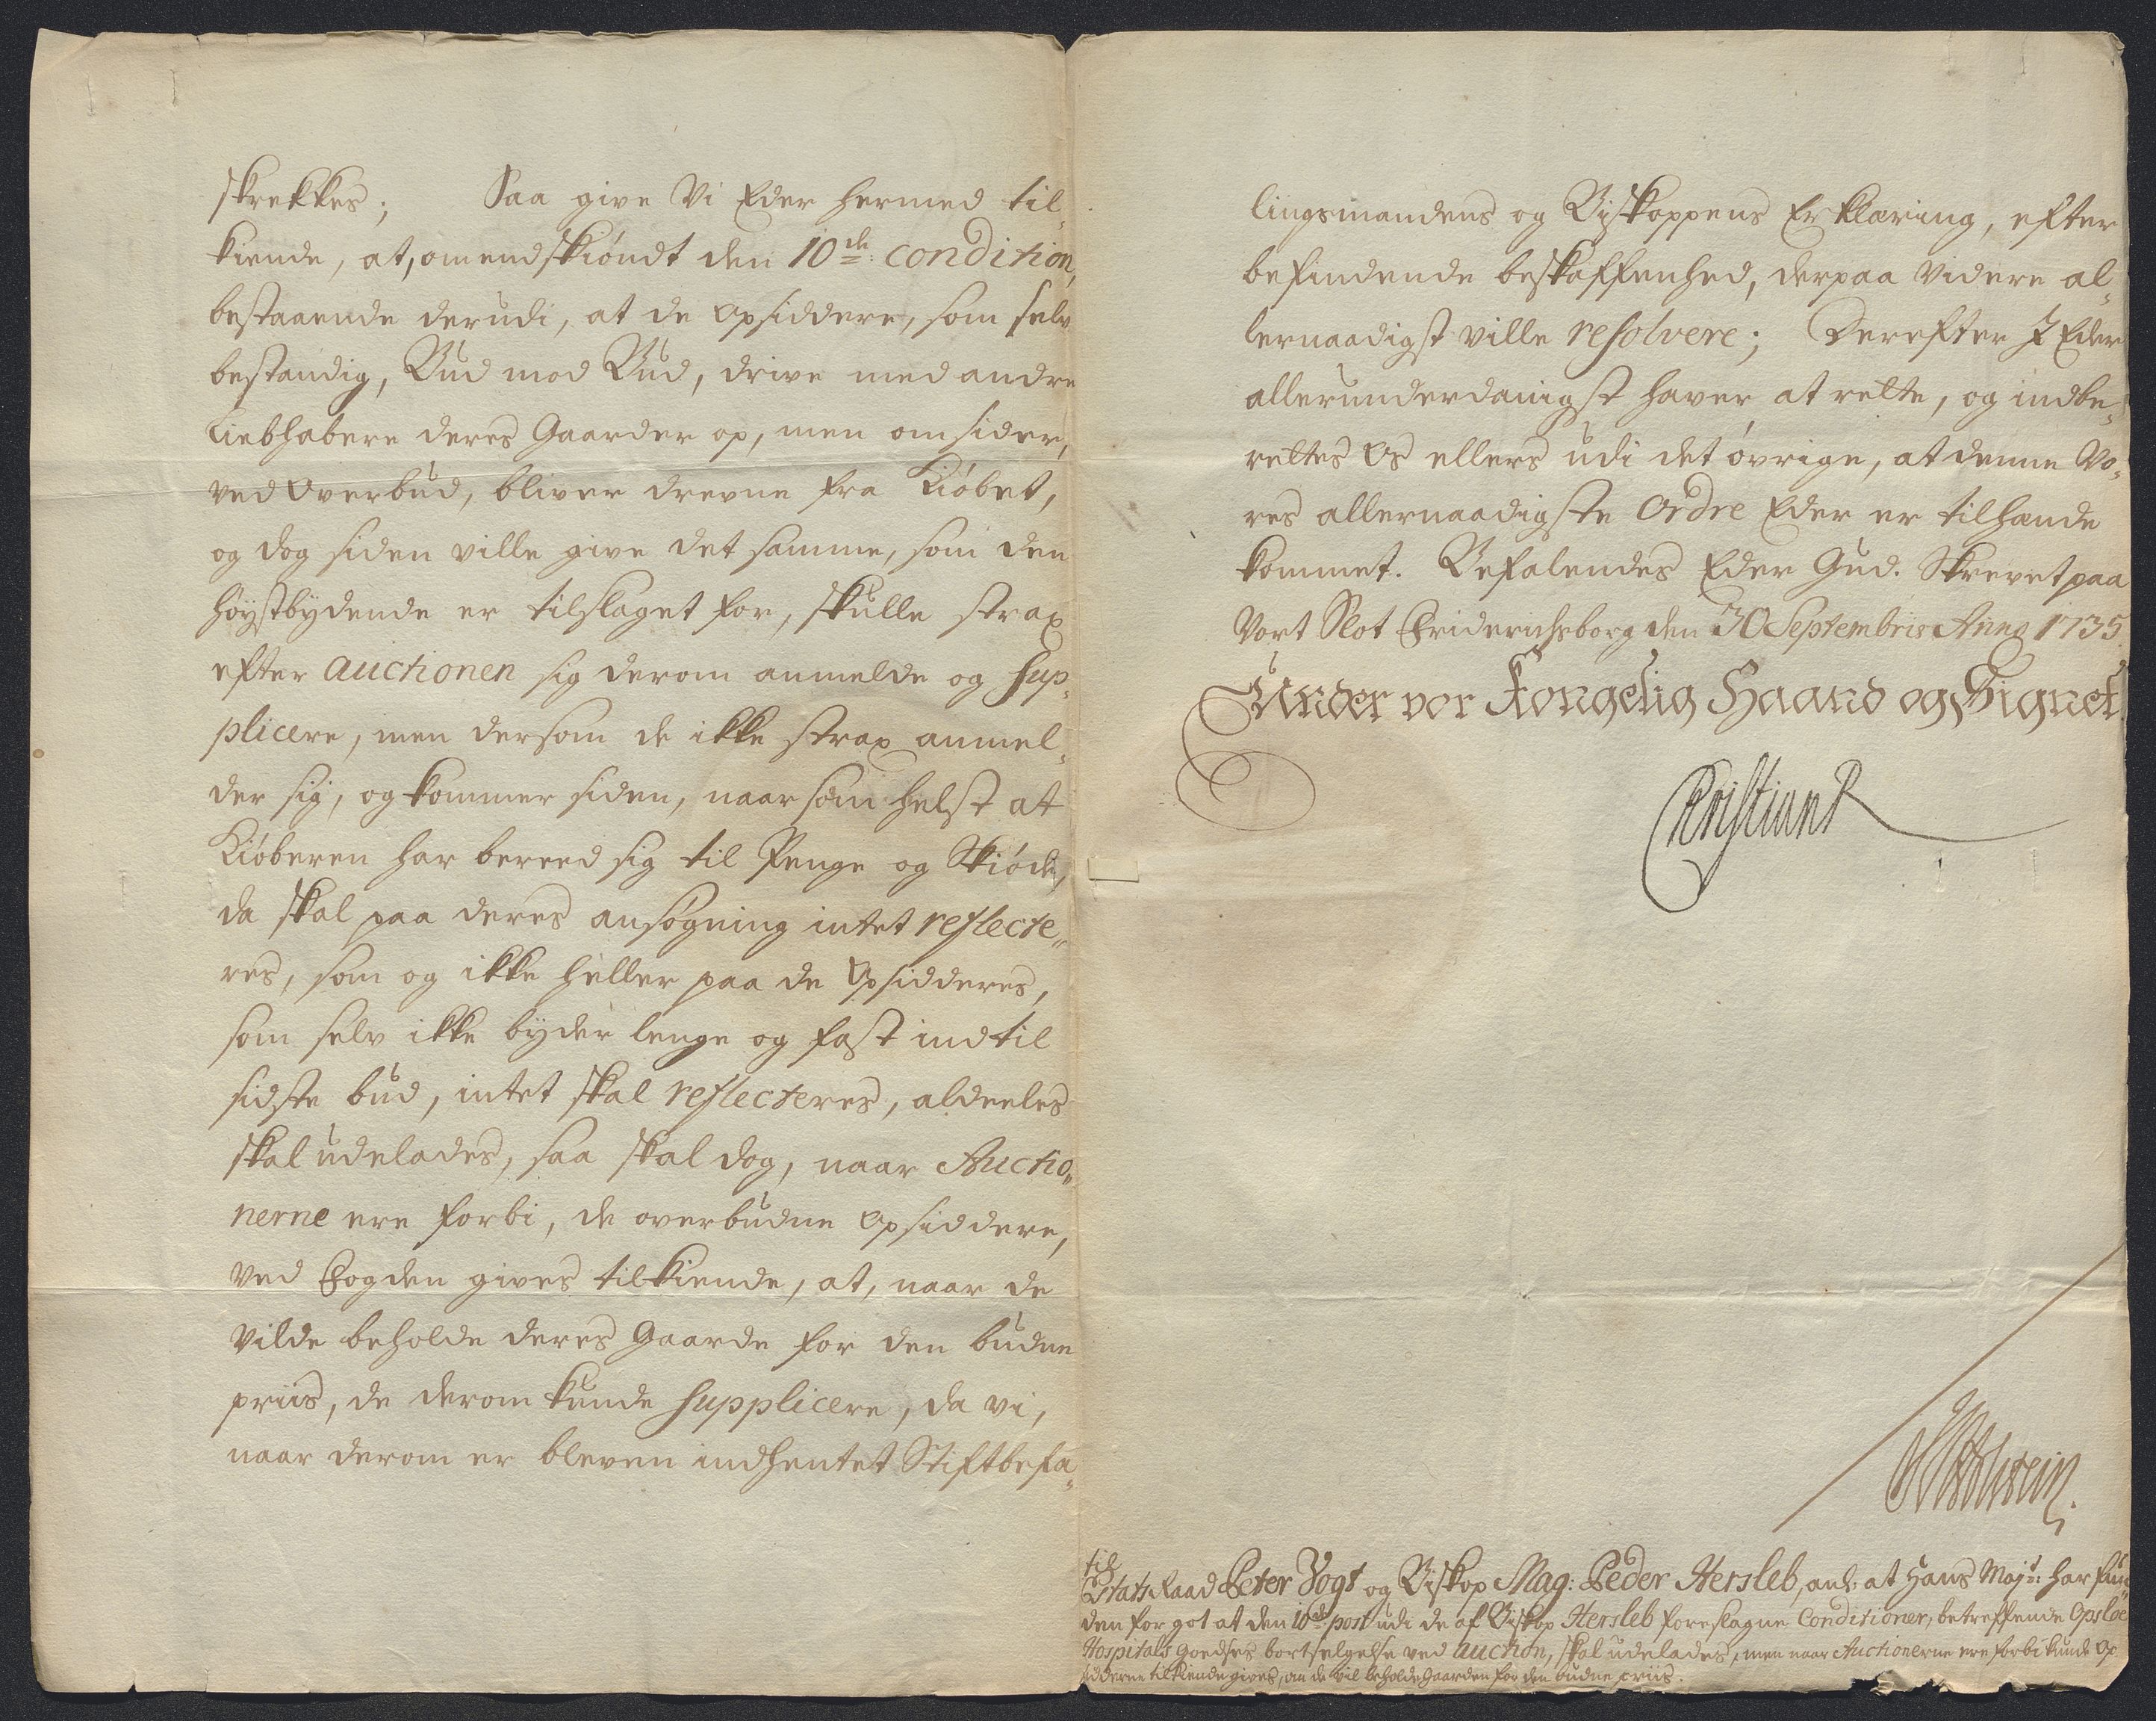 skrekkes; Saa give Vi Eder hermed til-
kiende, at, omendskiøndt den 10de: condition,
bestaaende derudi, at de Opsiddere, som selv
bestandig, Bud mod Bud, drive med andre
Liebhabere deres Gaarder op, men omsider,
ved Overbud, bliver drevne fra Kiøbet,
og dog siden ville give det samme, som den
høystbydende er tilslaget for, skulle strax
efter auctionen sig derom anmelde og sup-
plicere, men dersom de ikke strax anmel-
der sig, og kommer siden, naarsom helst at
Kiøberen har bereed sig til Penge og Skiøde,
da skal paa deres ansøgning intet reflecte-
res, som og ikke heller paa de Opsidderes,
som selv ikke byder lenge og fast indtil
sidste bud, intet skal reflecteres, aldeeles
skal udelades, saa skal dog, naar Auctio-
nerne ere forbi, de overbudne Opsiddere,
ved Fogden gives tilkiende, at, naar de
vilde beholde deres Gaarde for den budne
priis, de derom kunde supplicere, da vi,
naar derom er bleven indhentet Stiftbefa-
lingsmandens og Biskoppens Erklæring, efter
befindende beskaffenhed, derpaa videre al-
lernaadigst ville resolvere; Derefter I Eder
allerunderdanigst haver at rette, og indbe-
rettes Os ellers udi det øvrige, at denne Vo-
res allernaadigste Ordre Eder er tilhænde
kommet. Befalendes Eder Gud. Skrevet paa
Vort Slot Friderichsborg den 30 Septembris Anno 1735.
Under vor Kongelig Haand og Signet
Christian R
til
Etats Raad Peter Vogt og Biskop Mag: Peder Hersleb, anl: at Hans Majt: har fun-
den for got at den 10de post udi de af Biskop Hersleb foreslagne Conditioner, betreffende Opsloe
Hospitals Goedses bortselgelse ved auction, skal udelades, men naar Auctionerne ere forbi kunde Op
sidderne tilkiende gives, om de vil beholde Gaarden for den budne priis.